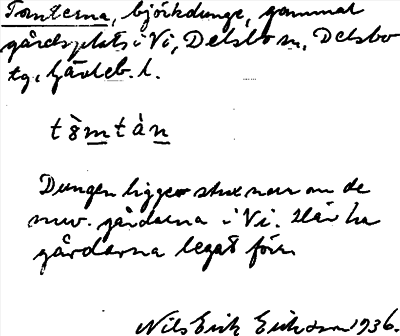 Tomterna, björkdunge, gammal
gårdsplats i Vi, Delsbo sn, Delsbo
tg, Gävleb. l.
tòmtàn
Dungen ligger strax norr om de
nuv. gårdarna i Vi. Här ha
gårdarna legat förr.
Nils Erik Erikson 1936.